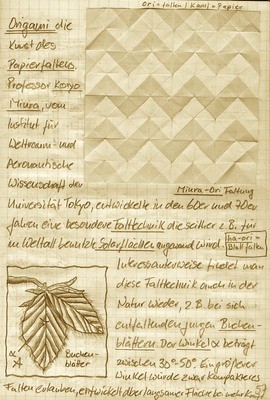 Ori = falten / Kami = Papier
Origami die
Kunst des
Papierfaltens.
Professor Koryo
Miura, vom
Institut für
Weltraum- und
Aeronautische
Wissenschaft der
Miura-Ori Faltung
Universität Tokyo, entwickelte in den 60er und 70er
Jahren eine besondere Falttechnik die seither z.B. für
im Weltall benutzte Solarflächen angewand wird.
ha-ori =
Blatt falten
Interessanterweise findet man
diese Falttechnik auch in der
Natur wieder, z.B. bei sich
entfaltenden jungen Buchen-
blättern. Der Winkel α beträgt
zwischen 30°-50°. Ein größerer
Winkel würde zwar kompakteres
Falten erlauben, entwickelt aber langsamer Fläche
α
Buchen-
blätter